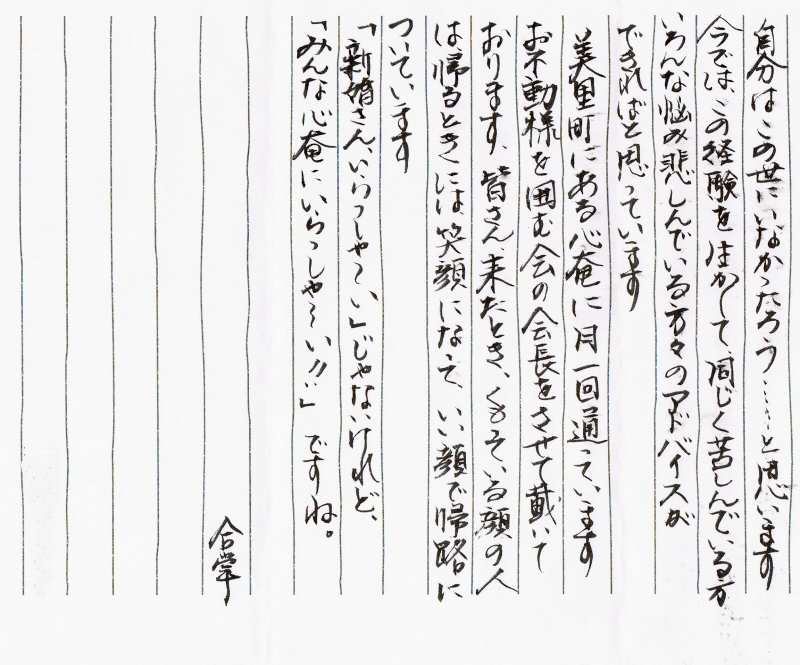 自分はこの世にいなかったろう……と思います
今では、この経験をはかして、同じく苦しんでいる方
いろんな悩み悲しんでいる方々のアドバイスが
できればと思っています
美里町にある心庵に月一回通っています
お不動様を囲む会の会長をさせて戴いて
おります、皆さん、来たとき、くもっている顔の人
は帰るときには、笑顔になって、いい顔で帰路に
ついています
「新婚さん、いらっしゃ〜い」じゃないけれど、
「みんな心庵にいらっしゃ〜い!!」ですね。
合掌